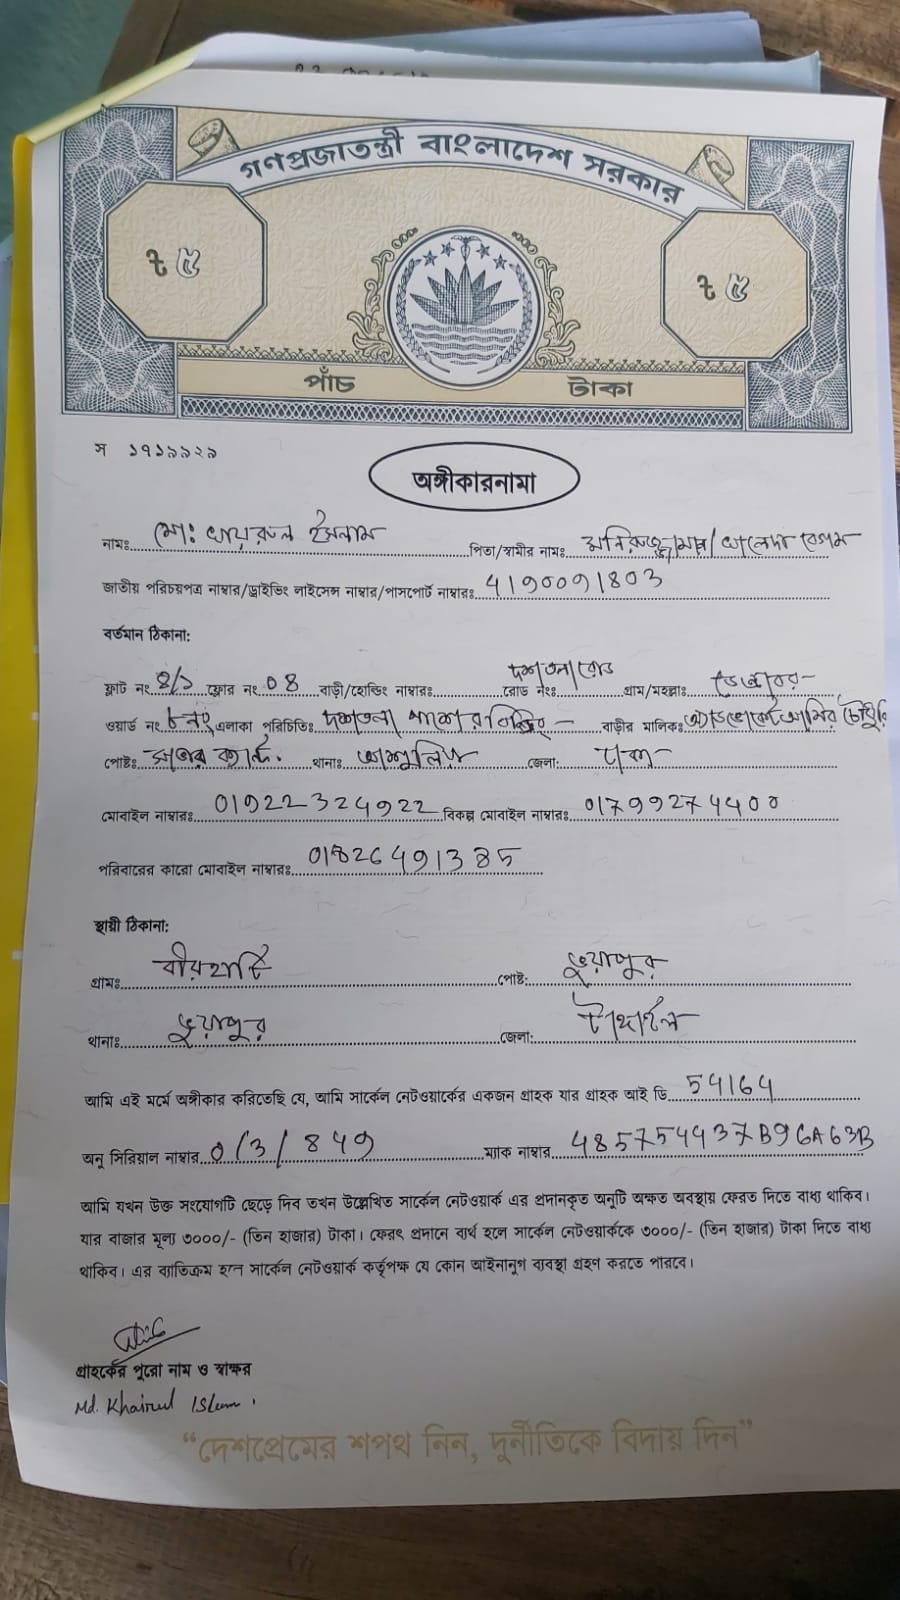 গণপ্রজাতন্ত্রী বাংলাদেশ সরকার
৳ ৫
৳ ৫
পাঁচ টাকা
স ১৭১৯৯২৯
অঙ্গীকারনামা
নামঃ মোঃ খায়রুল ইসলাম পিতা/স্বামীর নামঃ মনিরুজ্জামান/খালেদা বেগম
জাতীয় পরিচয়পত্র নাম্বার/ড্রাইভিং লাইসেন্স নাম্বার/পাসপোর্ট নাম্বারঃ 4190091803
বর্তমান ঠিকানা:
ফ্লাট নং 8/১ ফ্লোর নং ০৪ বাড়ী/হোল্ডিং নাম্বারঃ রোড নংঃ দশতলা রোড গ্রাম/মহল্লাঃ
ওয়ার্ড নং ৮ নং এলাকা পরিচিতিঃ দশতলা পাশের বিল্ডিং বাড়ীর মালিকঃ এ্যাডভোকেট আমির চৌধুরি
পোষ্টঃ থানাঃ আশুলিয়া জেলা: ঢাকা
মোবাইল নাম্বারঃ 01922324922 বিকল্প মোবাইল নাম্বারঃ 01799274400
পরিবারের কারো মোবাইল নাম্বারঃ 01826491385
স্থায়ী ঠিকানা:
গ্রামঃ বীরহাটি পোষ্ট: ভুয়াপুর
থানাঃ ভুয়াপুর জেলা: টাঙ্গাইল
আমি এই মর্মে অঙ্গীকার করিতেছি যে, আমি সার্কেল নেটওয়ার্কের একজন গ্রাহক যার গ্রাহক আই ডি 54164
অনু সিরিয়াল নাম্বার 0/3/849 ম্যাক নাম্বার 485754437B96A63B
আমি যখন উক্ত সংযোগটি ছেড়ে দিব তখন উল্লেখিত সার্কেল নেটওয়ার্ক এর প্রদানকৃত অনুটি অক্ষত অবস্থায় ফেরত দিতে বাধ্য থাকিব।
যার বাজার মূল্য ৩০০০/- (তিন হাজার) টাকা। ফেরৎ প্রদানে ব্যর্থ হলে সার্কেল নেটওয়ার্ককে ৩০০০/- (তিন হাজার) টাকা দিতে বাধ্য
থাকিব। এর ব্যাতিক্রম হলে সার্কেল নেটওয়ার্ক কর্তৃপক্ষ যে কোন আইনানুগ ব্যবস্থা গ্রহণ করতে পারবে।
গ্রাহকের পুরো নাম ও স্বাক্ষর
Md. Khairul Islam.
“দেশপ্রেমের শপথ নিন, দুর্নীতিকে বিদায় দিন”